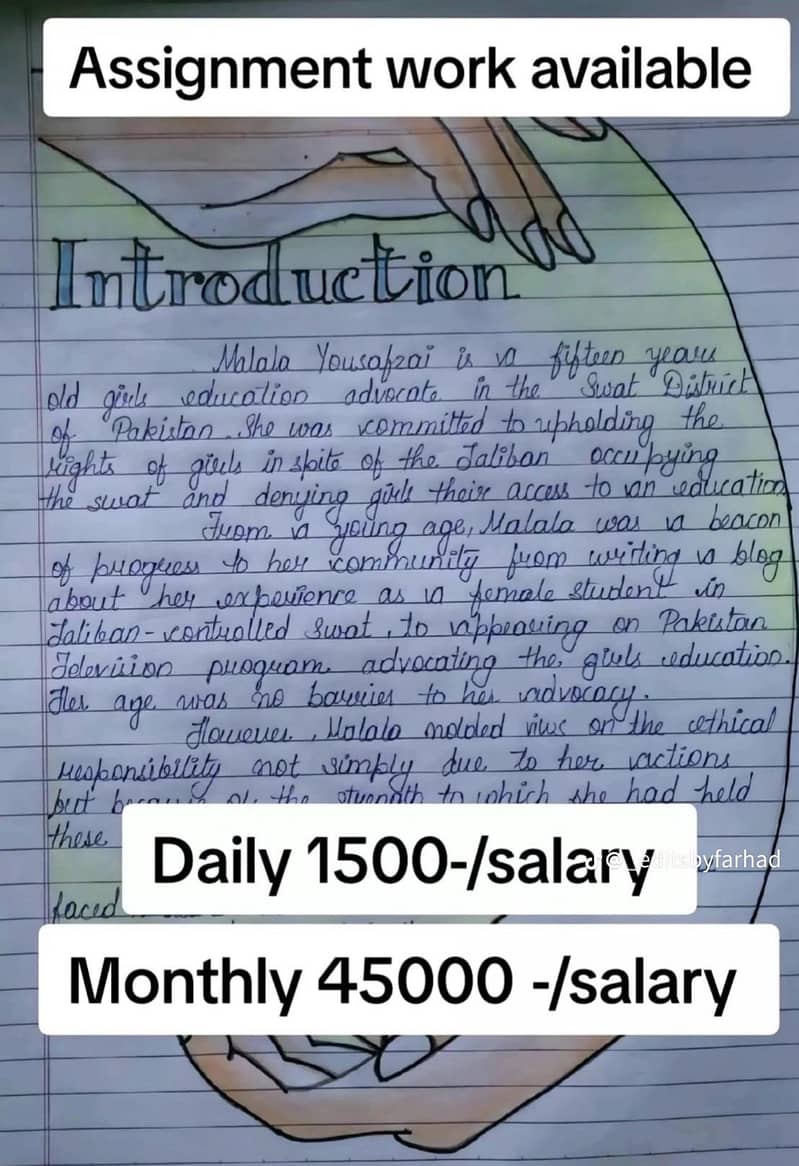 Assignment work available
Introduction
Malala Yousafzai is a fifteen years
old girls education advocate in the Swat District
of Pakistan. She was committed to upholding the
rights of girls in spite of the Taliban occupying
the swat and denying girls their access to an education
From a young age, Malala was a beacon
of progress to her community from writing a blog
about her experience as a female student in
Taliban-controlled Swat, to appearing on Pakistan
Television program advocating the girls education.
Her age was no barrier to her advocacy.
However, Malala molded viws on the ethical
responsibility not simply due to her actions
but of the strength to which she had held
these
Daily 1500-/salary
byfarhad
faced
Monthly 45000 -/salary